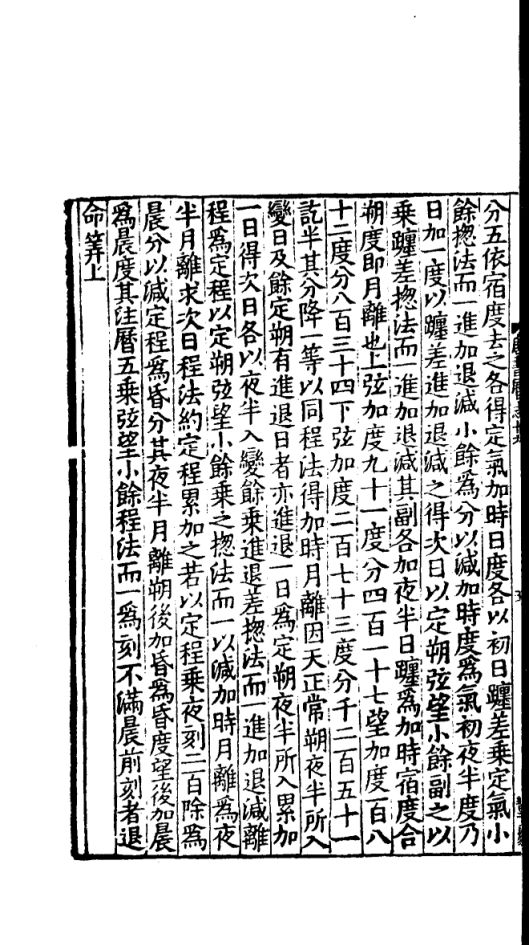 分五依宿度去之各得定氣加時日度各以初日躔差乘定氣小
餘揔法而一進加退減小餘爲分以減加時度爲氣初夜半度乃
日加一度以躔差進加退減之得次日以定朔弦望小餘副之以
乘躔差揔法而一進加退減其副各加夜半日躔爲加時宿度合
朔度即月離也上弦加度九十一度分四百一十七望加度百八
十二度分八百三十四下弦加度二百七十三度分千二百五十一
訖半其分降一等以同程法得加時月離因天正常朔夜半所入
變日及餘定朔有進退日者亦進退一日爲定朔夜半所入累加
一日得次日各以夜半入變餘乘進退差揔法而一進加退減離
程爲定程以定朔弦望小餘乘之揔法而一以減加時月離爲夜
半月離求次日程法約定程累加之若以定程乘夜刻二百除爲
晨分以減定程爲昏分其夜半月離朔後加昏爲昏度望後加晨
爲晨度其注曆五乘弦望小餘程法而一爲刻不滿晨前刻者退
命筭上